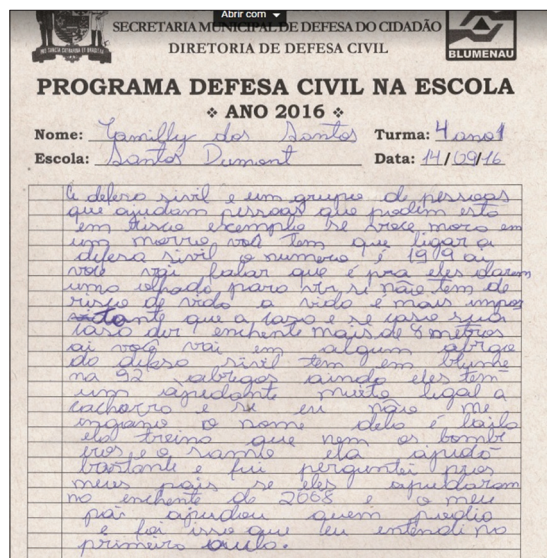 Abrir com
SECRETARIA MUNICIPAL DE DEFESA DO CIDADÃO
DIRETORIA DE DEFESA CIVIL
BLUMENAU
PROGRAMA DEFESA CIVIL NA ESCOLA
❖ ANO 2016 ❖
Nome: Tamilly dos Santos Turma: 4 ano 1
Escola: Santos Dumont Data: 14/09/16
A defesa sivil e um grupo de pessoas
que ajudam pessoas que podem está
em risco exemplo se voce mora em
um morro você tem que ligar a
defesa sivil o numero é 199 ai
voce vai falar que é pra eles darem
uma olhada para ver si não tem de
risco de vida a vida é mais impor
tante que a casa e se caso sua
casa der enchente mais de 8 metros
ai você vai em algum abrigo
da defesa sivil tem em blume
na 92 abrigos ainda eles tem
um ajudante muito legal a
cachorra e se eu não me
engano o nome dela é laila
ela treina que nem os bombe
iros e o samu ela ajuda
bastante e fui perguntei pros
meus pais se eles ajudaram
na enchente de 2008 e o meu
pai ajudou quem podia
e foi isso que eu entendi na
primeira aula.